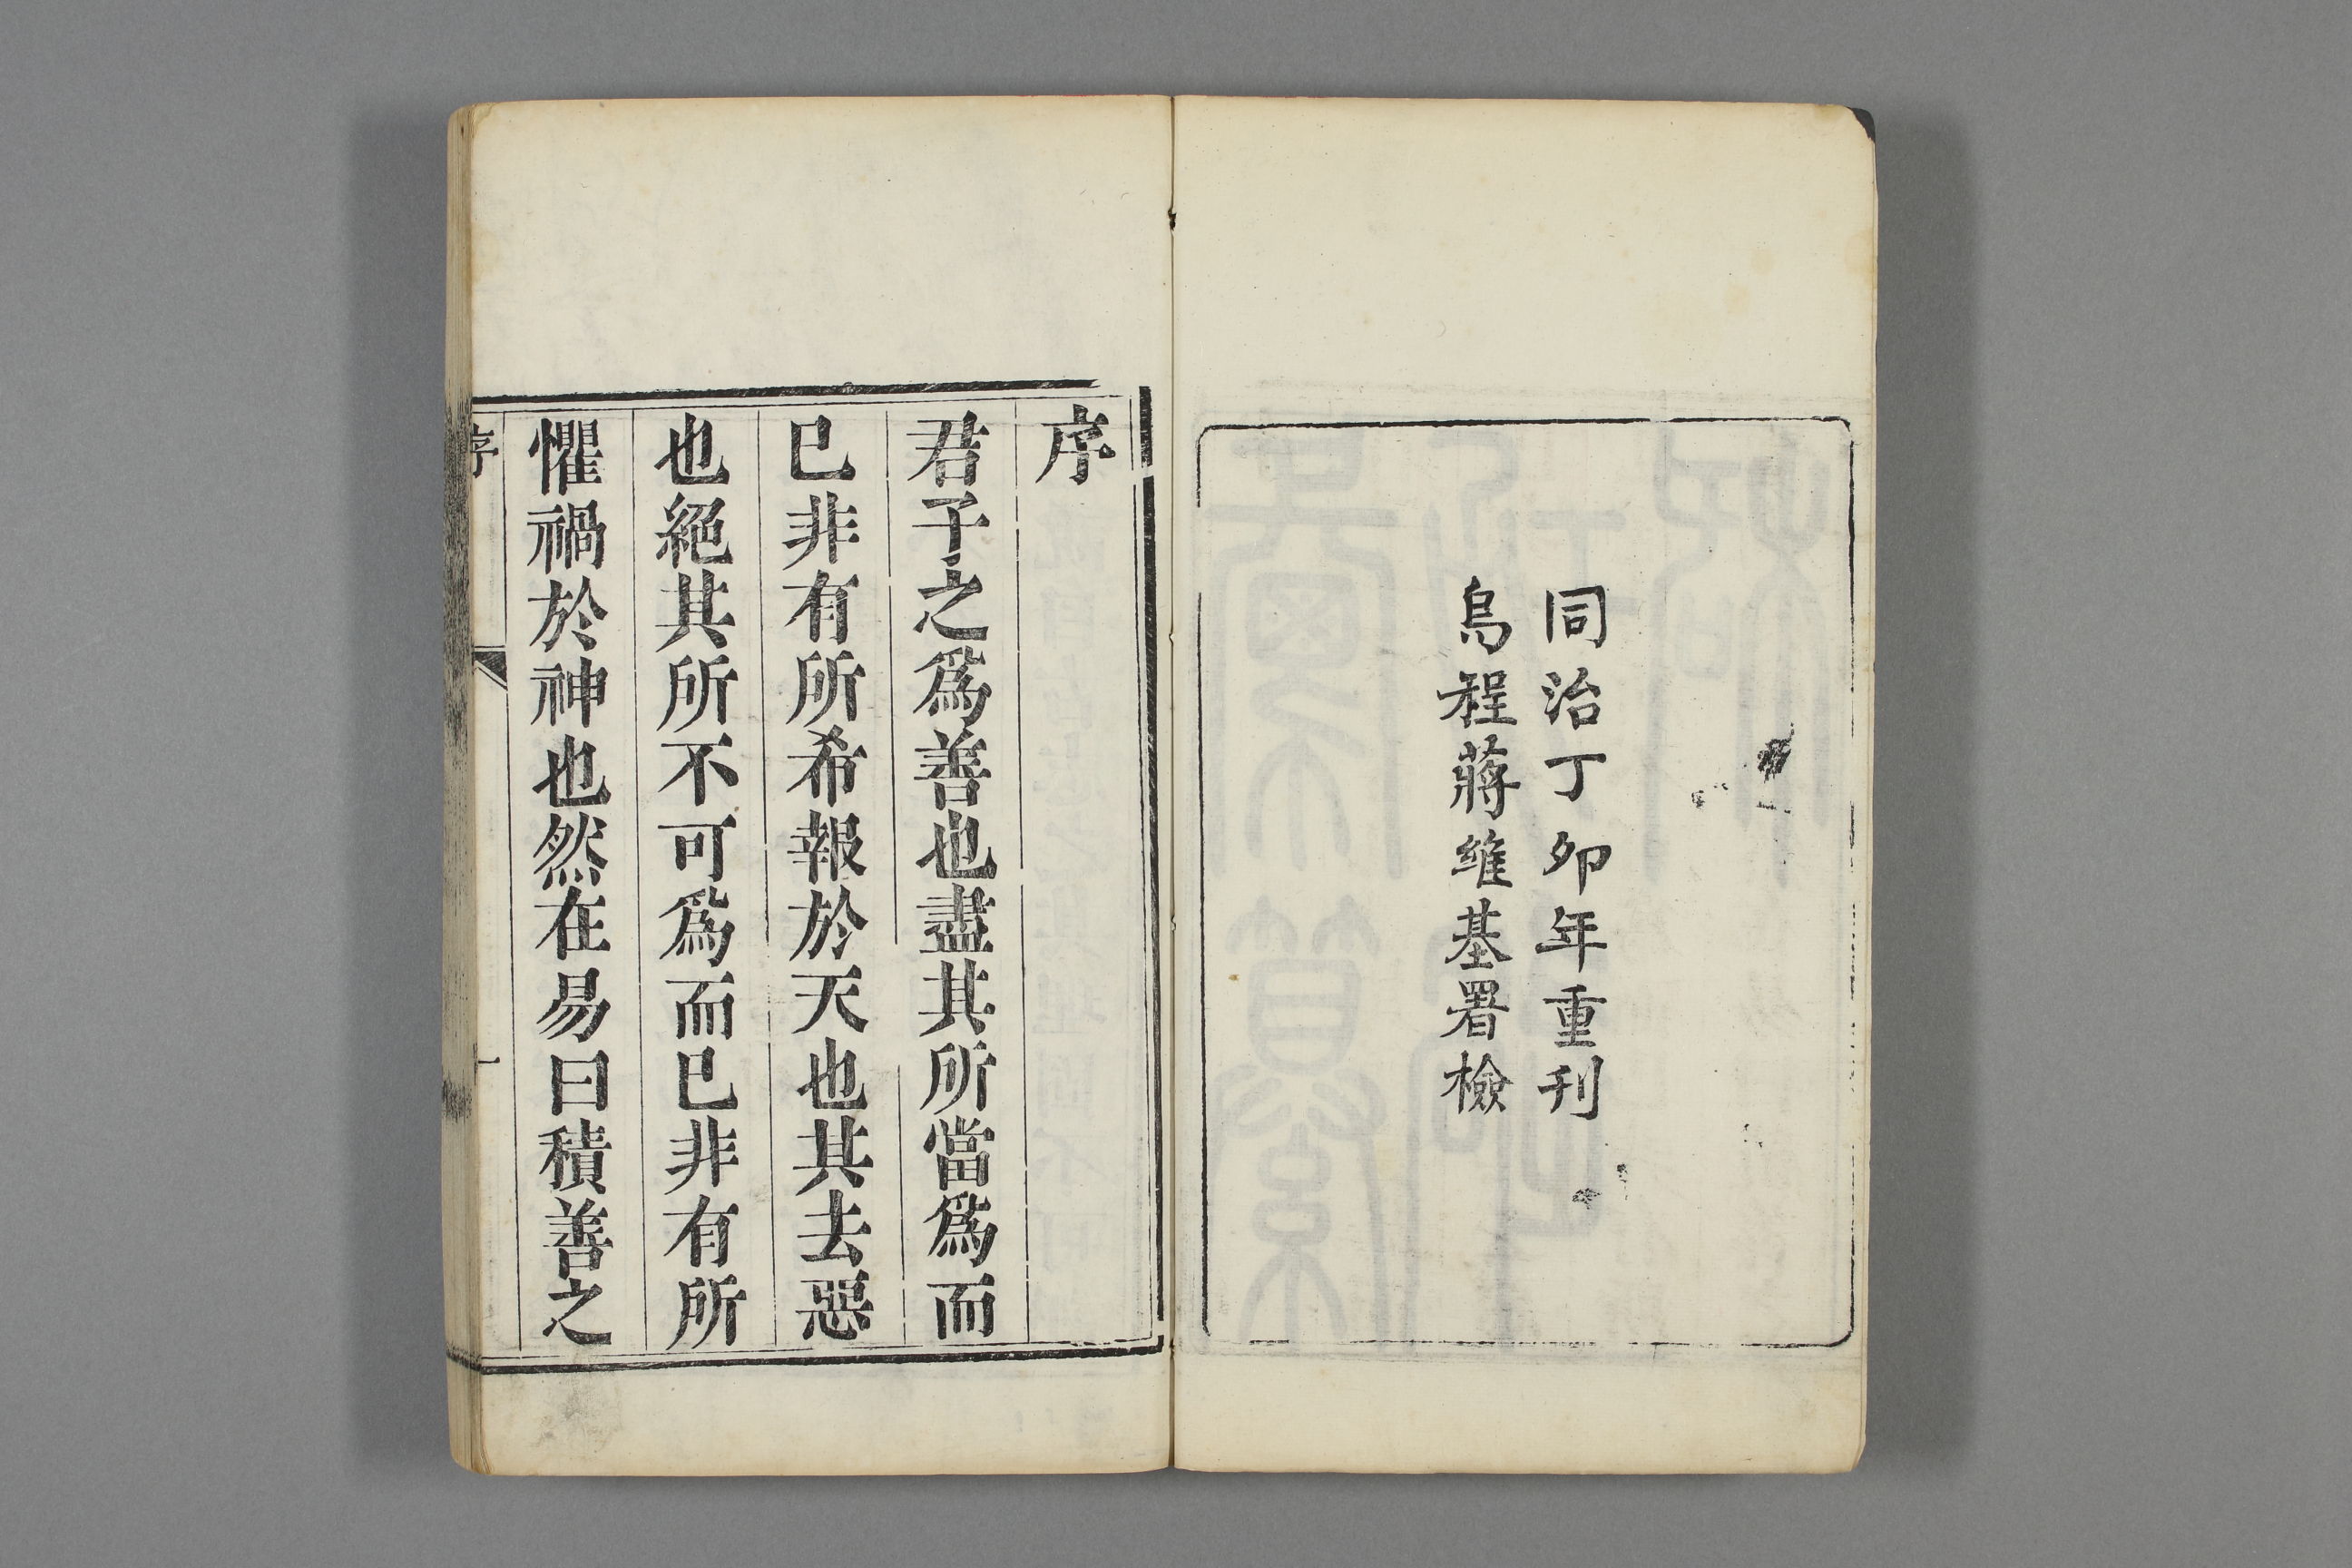 同治丁卯年重刊
烏程蔣維基署檢
序
君子之爲善也盡其所當爲而
已非有所希報於天也其去惡
也絕其所不可爲而已非有所
懼禍於神也然在易曰積善之
序
一